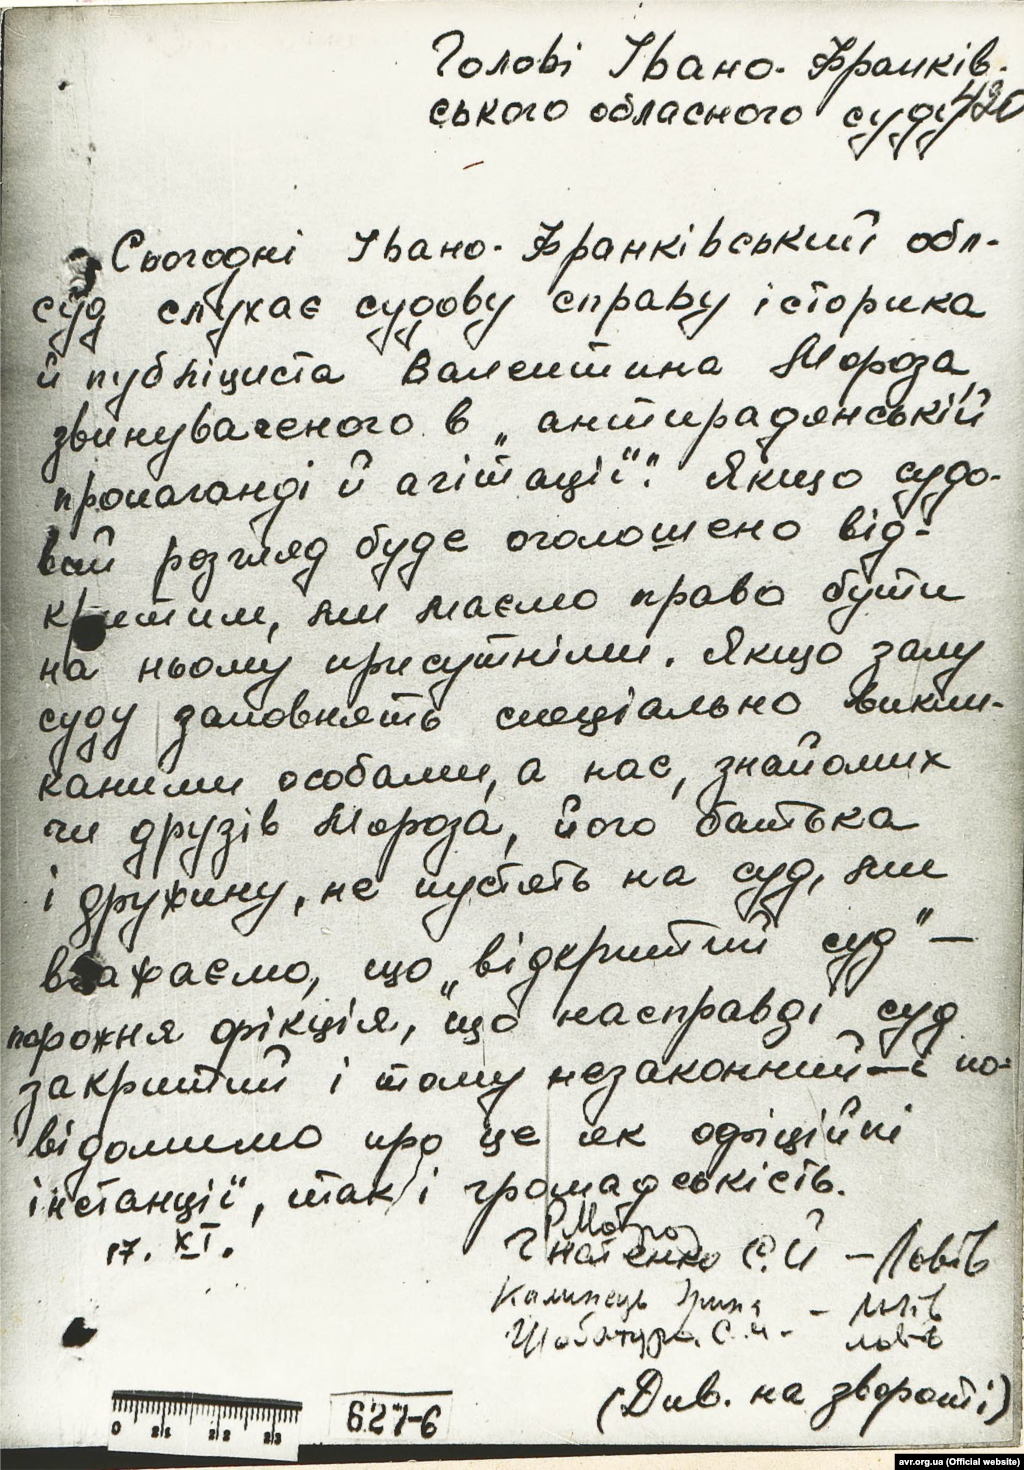 Голові Івано-Франків-
ського обласного суду 420
Сьогодні Івано-Франківський обл-
суд слухає судову справу історика
й публіциста Валентина Мороза,
звинуваченого в „антирадянській
пропаганді й агітації". Якщо судо-
вий розгляд буде оголошено від-
критим, ми маємо право бути
на ньому присутніми. Якщо залу
суду заповнять спеціально викли-
каними особами, а нас, знайомих
чи друзів Мороза, його батька
і дружину, не пустять на суд, ми
вважаємо, що „відкритий суд" —
порожня фікція, що насправді суд
закритий і тому незаконний — і по-
відомимо про це як офіційні
інстанції, так і громадськість.
17. XI.
Гнатенко С.Й – Львів
Калинець Ірина – Львів
Шабатура С. М. – Львів
(Див. на звороті)
0 1 2 3
627-6
avr.org.ua (Official website)